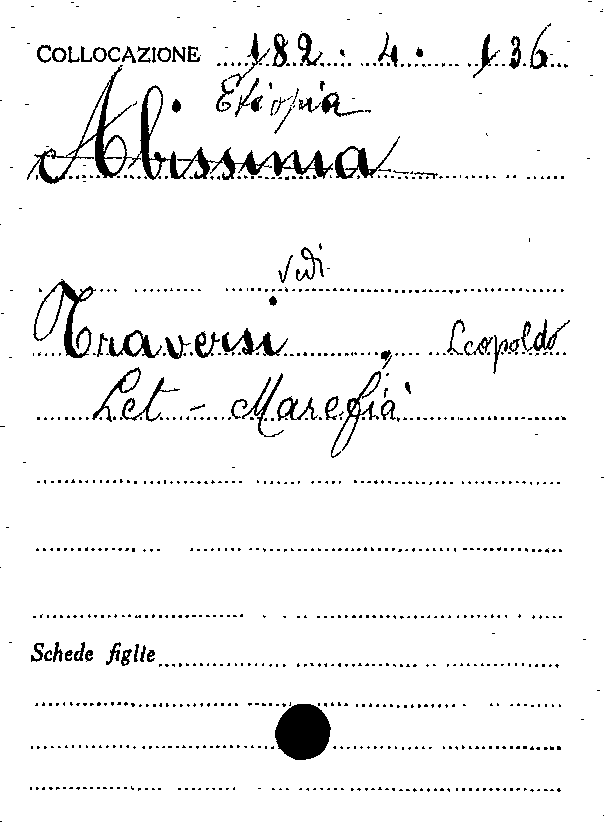 COLLOCAZIONE 182. 4. 136
Etiopia
Abissinia
vedi
Traversi, Leopoldo
Let-Marefià
Schede figlie